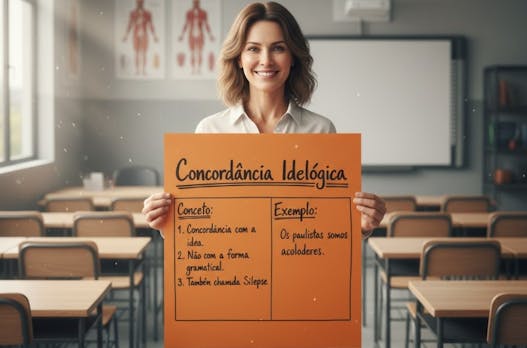 Concordância Idelógica
Conceto:
1. Concordância com a
idea.
2. Não com a forma
gramatical.
3. Também chamada Silepse
Exemplo:
Os paulistas somos
acoloderes.